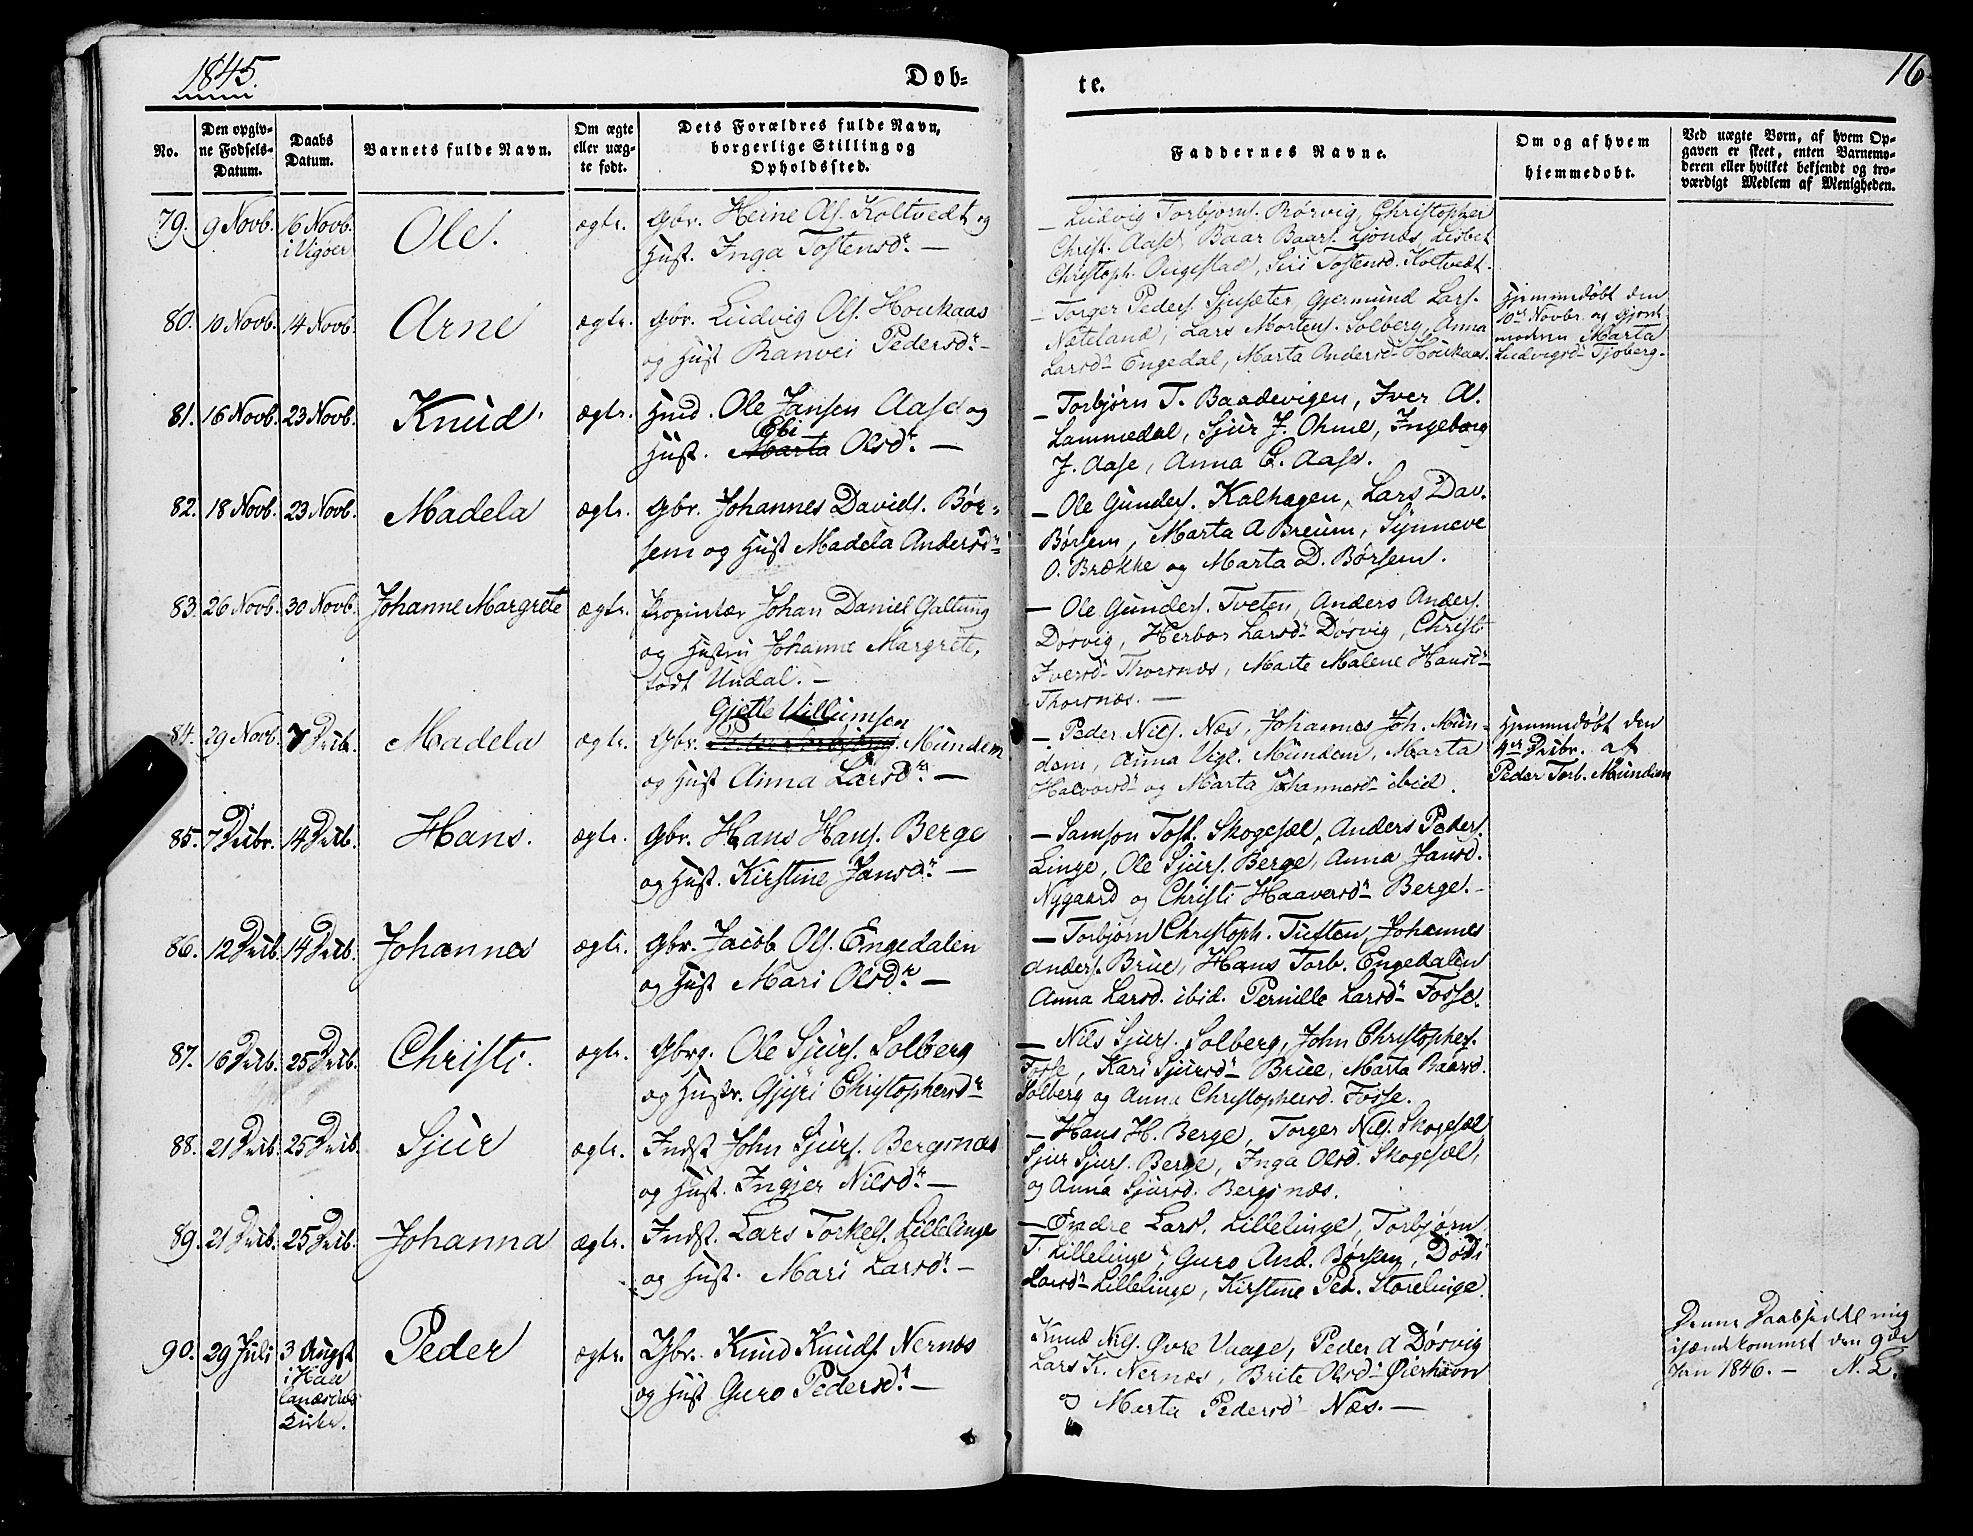 1845.
Døb-
te.
16
No.
Den opgiv-
ne Fødsels-
Datum.
Daabs
Datum.
Barnets fulde Navn.
Om ægte
eller uæg-
te født.
Dets Forældres fulde Navn,
borgerlige Stilling og
Opholdssted.
Faddernes Navne.
Om og af hvem
hjemmedøbt.
Ved uægte Børn, af hvem Op-
gaven er skeet, enten Barnemo-
deren eller hvilket bekjendt og tro-
værdigt Medlem af Menigheden.
79. 9 Novb. 16 Novb. Ole. ægte. Gbr. Heine Ols. Koltvedt og
i Vigøer Hust. Inga Tostensdr. —
— Ludvig Torbjørns. Rørvig, Christopher
Christ. Aase, Baar Baars. Ljonæs, Lisbet
Christoph. Augestad, Siri Tostensd. Koltvedt.
80. 10 Novb. 14 Novb. Arne ægte. Gbr. Ludvig Ols. Houkaas
og Hust Ranvei Pedersdr. —
— Torger Peders. Sjusæter, Gjermund Lars.
Neteland, Lars Mortens. Solberg, Anna
Larsdr Engedal, Marta Andersdr Houkaas.
Hjemmedøbt den
10de Novbr. og Gjord-
moderen Marta
Ludvigsdr Tjoberg.
81. 16 Novb. 23 Novb. Knud ægte. Hmd. Ole Jansen Aase og
Ebi
Hust. Marta Olsdr. —
— Torbjørn T. Baadevigen, Iver A.
Lammedal, Sjur J. Ohme, Ingeborg
J. Aase, Anna C. Aase.
82. 18 Novb. 23 Novb. Madela ægte. Gbr. Johannes Davids. Bør-
sem og Hust Madela Andersdr
— Ole Gunders. Kalhagen, Lars Dav.
Børsem, Marta A Breum, Synneve
O. Brække og Marta D. Børsem.
83. 26 Novb. 30 Novb. Johanne Margrete ægte. Proprietær Johan Daniel Galtung
og Hustru Johanne Margrete,
født Undal. —
— Ole Gunders. Tveten, Anders Anders.
Døsvig, Herbor Larsdr Døsvig, Christi
Iversdr Thorsnæs, Marte Malene Hansdr
Thorsnæs. —
Gjetle Villumsen
84. 29 Novb. 7 Decb. Madela ægte. Gbr. Mundem
og Hust Anna Larsdr. —
— Peder Nils. Næs, Johannes Joh. Mun-
dem, Anna Vigl. Mundem, Marta
Halvorsdr og Marta Johannesdr ibid.
Hjemmedøbt den
4de Decbr. af
Peder Torb. Mundem
85. 7 Decbr. 14 Decb. Hans. ægte. Gbr. Hans Hans. Berge
og Hust. Kirstine Jansdr. —
— Samson Tost. Skogesæl, Anders Peders.
Linge, Ole Sjurs. Berge, Anna Jansd.
Nygaard og Christi Haaversdr Berge. —
86. 12 Decb. 14 Decb. Johannes ægte. Gbr. Jacob Ols. Engedalen
og Hust Mari Olsdr —
— Torbjørn Christoph. Tuften, Johannes
Anders. Brue, Hans Torb. Engedalen
Anna Larsd. ibid. Pernille Larsdr Fosse.
87. 16 Decb. 25 Decb. Christi. ægte. Gbrg. Ole Sjurs. Solberg
og Hustr. Gjyri Christophersdr
— Nils Sjurs. Solberg, John Christophers.
Fosse, Kari Sjursdr Brue, Marta Baarsd.
Solberg og Anna Christophersd. Fosse.
88. 21 Decb. 25 Decb. Sjur ægte. Indst John Sjurs. Bergsnæs
og Hust. Ingjer Nilsdr. —
— Hans H. Berge, Torger Nils. Skogesæl
Sjur Sjurs. Berge, Inga Olsd. Skogesæl,
og Anna Sjursd. Bergsnæs.
89. 21 Decb. 25 Decb. Johanna ægte. Indst. Lars Torkels. Lillelinge
og Hust. Mari Larsdr. —
— Endre Lars. Lillelinge, Torbjørn
T. Lillelinge, Guro And. Børsem, Dodi
Larsdr Lillelinge, Kirstine Ped. Storelinge.
90. 29 Juli 3 Augst Peder ægte. Gbr. Knud Knuds. Nernæs
i Kaa og Hust Guro Pedersdr. —
landsnæs
Kirke.
Knud Nils. Øvre Vaage, Peder A Døsvig
Lars K. Nernæs, Brite Olsdr Øierhavn
og Marta Pedersdr Næs. —
Denne Daabseddel mig
ihændekommet den 9de
Jan 1846. — N. L.